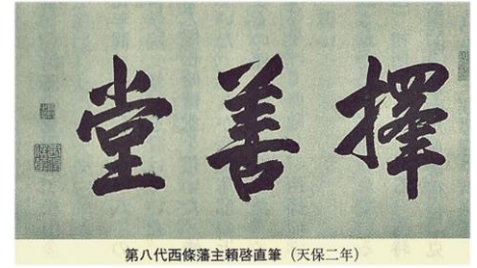 擇善堂
第八代西條藩主頼啓直筆（天保二年）